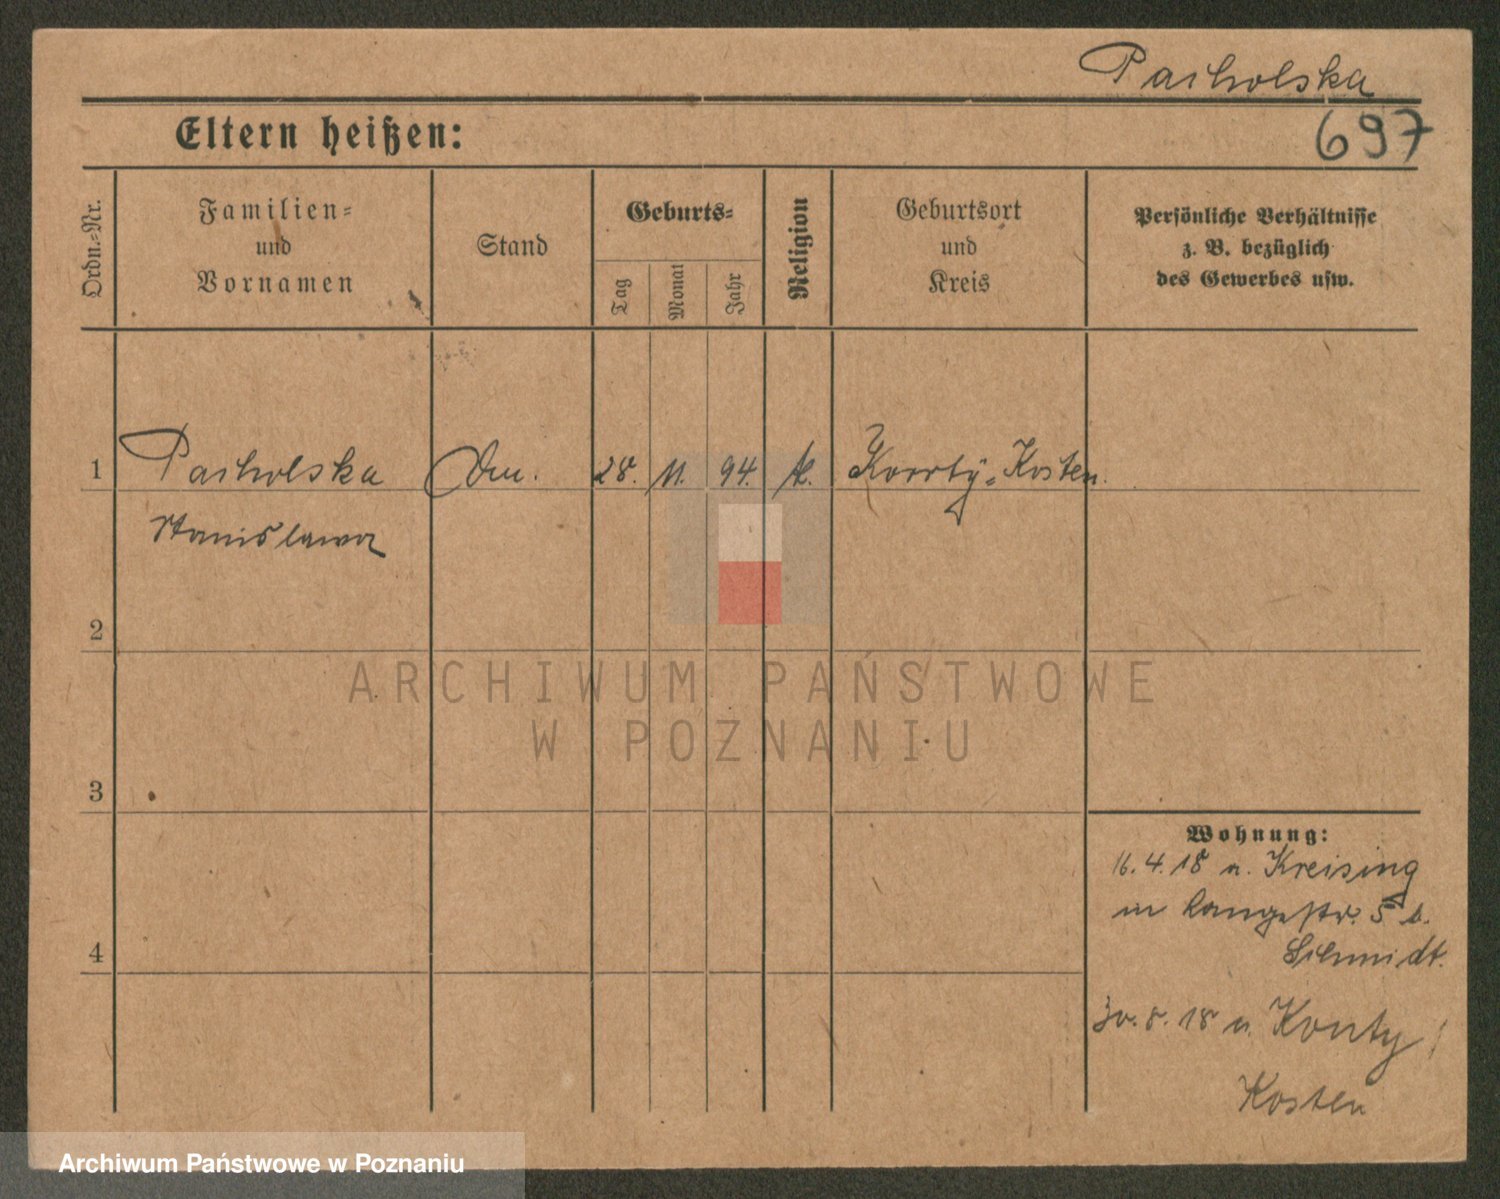 Pacholska
Eltern heißen:
697
Ordn.=Nr.
Familien=
und
Vornamen
Stand
Geburts=
Tag
Monat
Jahr
Religion
Geburtsort
und
Kreis
Persönliche Verhältnisse
z. B. bezüglich
des Gewerbes usw.
1 Pacholska 28. 11. 94. k. Kosten.
Stanislawa
2
3
4
Wohnung:
16.4.18 n. Kreising
in Langestr. 5 b.
Schmidt.
30.8.18 n. Konty
Kosten
ARCHIWUM PAŃSTWOWE
W POZNANIU
Archiwum Państwowe w Poznaniu